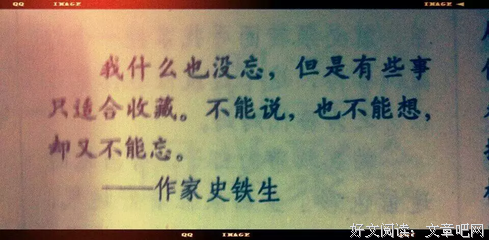 QQ IMAGE QQ IMAGE
我什么也没忘，但是有些事
只适合收藏。不能说，也不能想，
却又不能忘。
——作家史铁生
QQ IMAGE QQ IMAGE
好文阅读：文章吧网